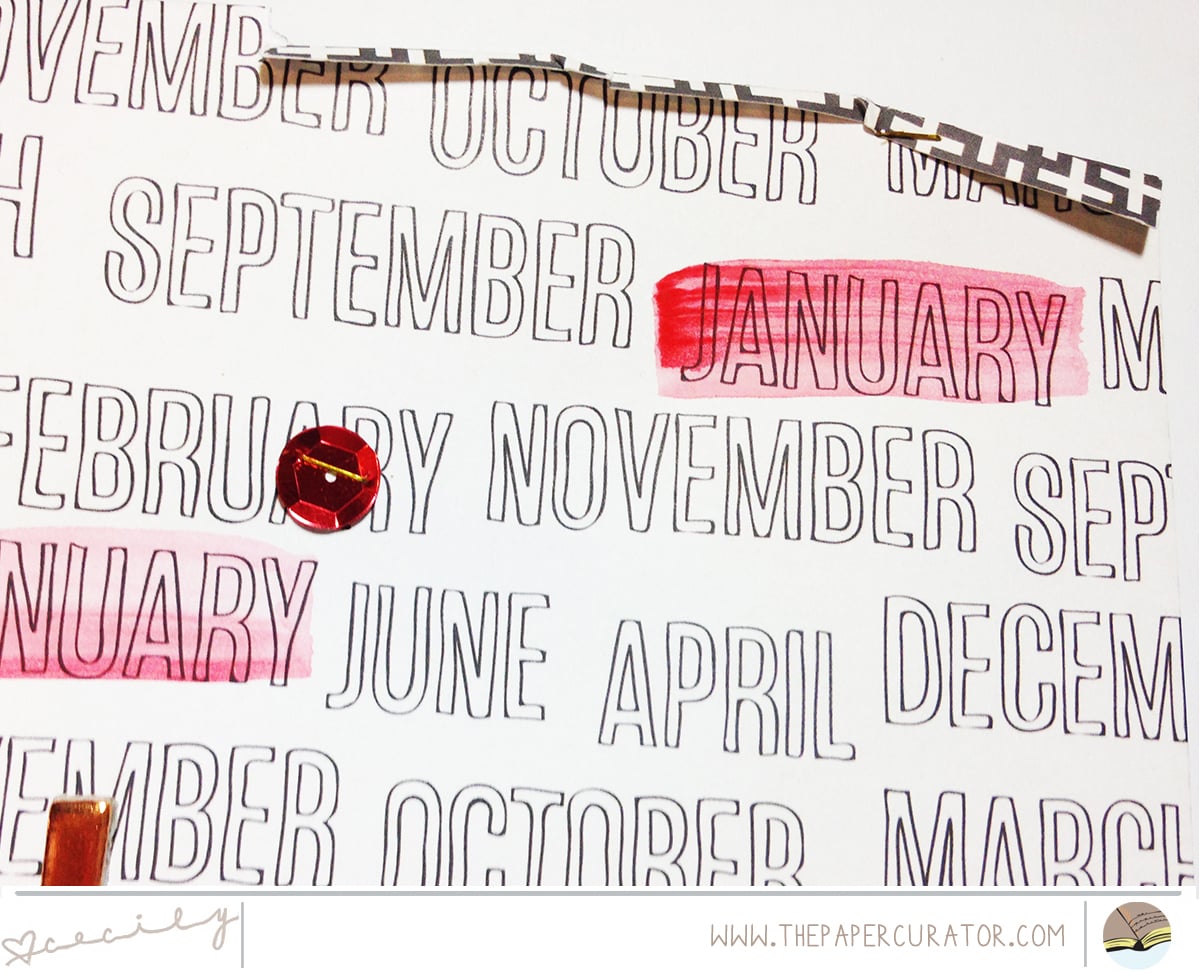 OVEMBER OCTOBER MARC
H SEPTEMBER JANUARY M
FEBRUARY NOVEMBER SEPT
NUARY JUNE APRIL DECEM
VEMBER OCTOBER MARCH
cecily WWW.THEPAPERCURATOR.COM